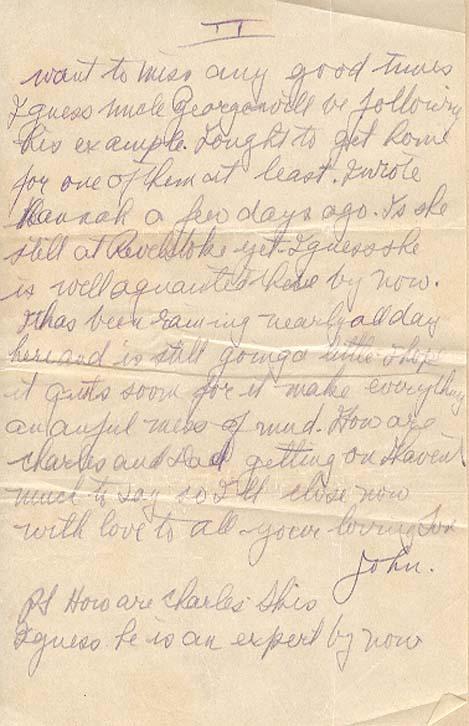 II
want to miss any good times
I guess Uncle George will be following
his example. I ought to get home
for one of them at least. I wrote
Hannah a few days ago. Is she
still at Revelstoke yet. I guess she
is well aquanted there by now.
It has been raining nearly all day
here and is still going a little. I hope
it quits soon for it make everything
an awful mess of mud. How are
Charles and Dad getting on. Haven't
much to say so I'll close now
with love to all your loving Son
John.
PS How are Charles' Skis
I guess he is an expert by now